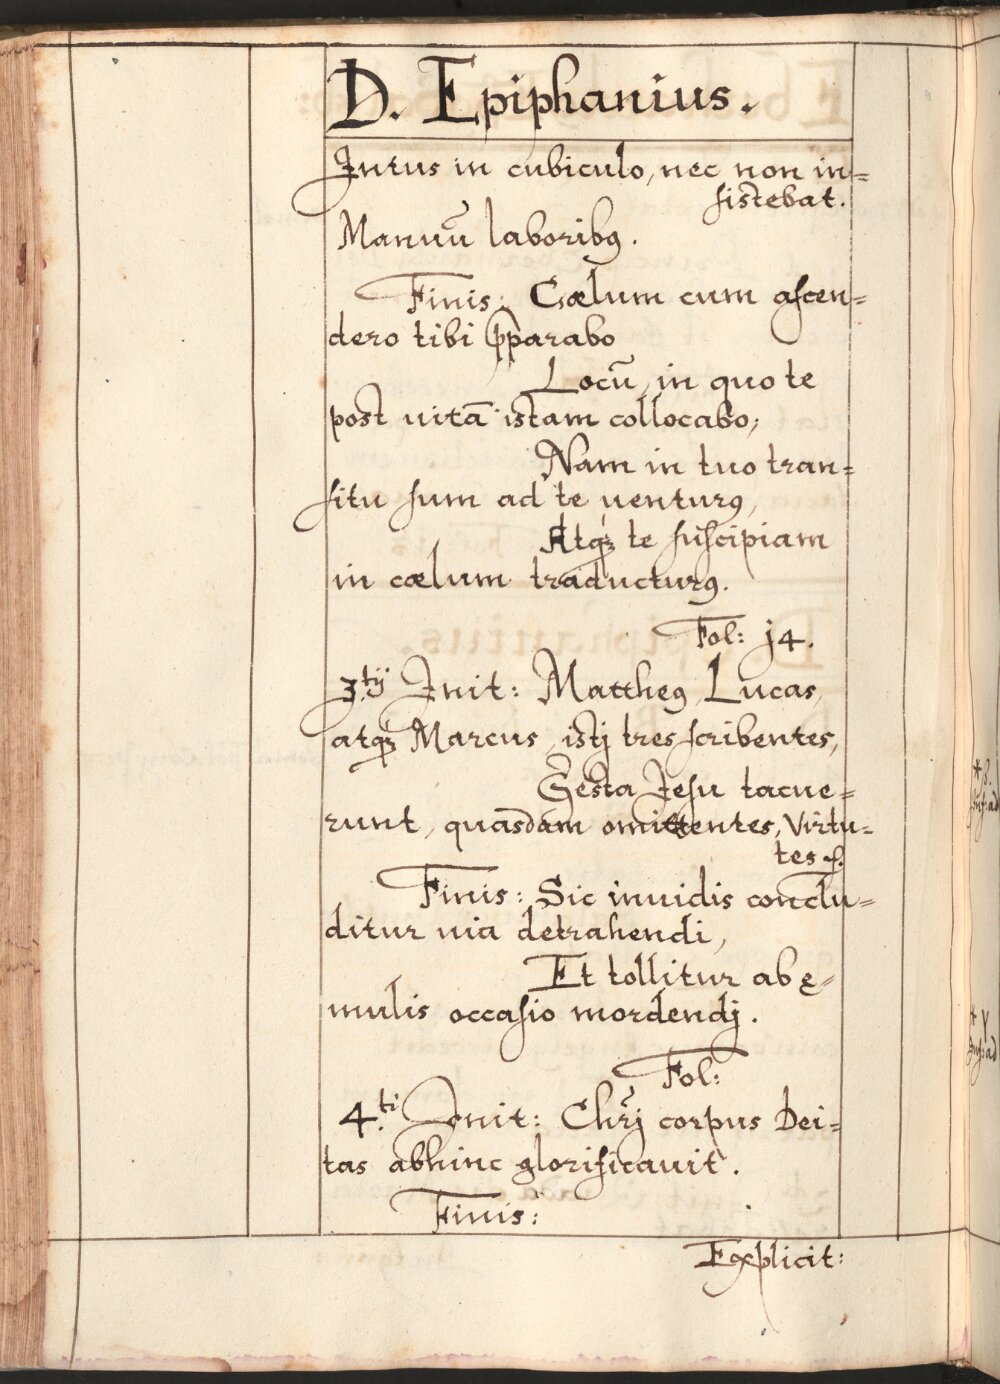 D. Epiphanius.
Intus in cubiculo, nec non in=
sistebat.
Manuū laboribꝰ.
Finis: Cælum cum ascen=
dero tibi p̄parabo
Locū, in quo te
post uitā istam collocabo;
Nam in tuo tran=
situ sum ad te uenturꝰ,
Atqꝫ te suscipiam
in cælum traducturꝰ.
Fol: j4.
3.tij Init: Mattheꝰ, Lucas,
atqꝫ Marcus, istj tres scribentes,
Gesta Jesu tacue=
runt, quasdam omittentes, Virtu=
tes
Finis: Sic inuidis conclu=
ditur uia detrahendi,
Et tollitur ab ę=
mulis occasio mordendj.
Fol:
4.ti Init: Chrj corpus Dei=
tas abhinc glorificauit.
Finis:
Explicit: